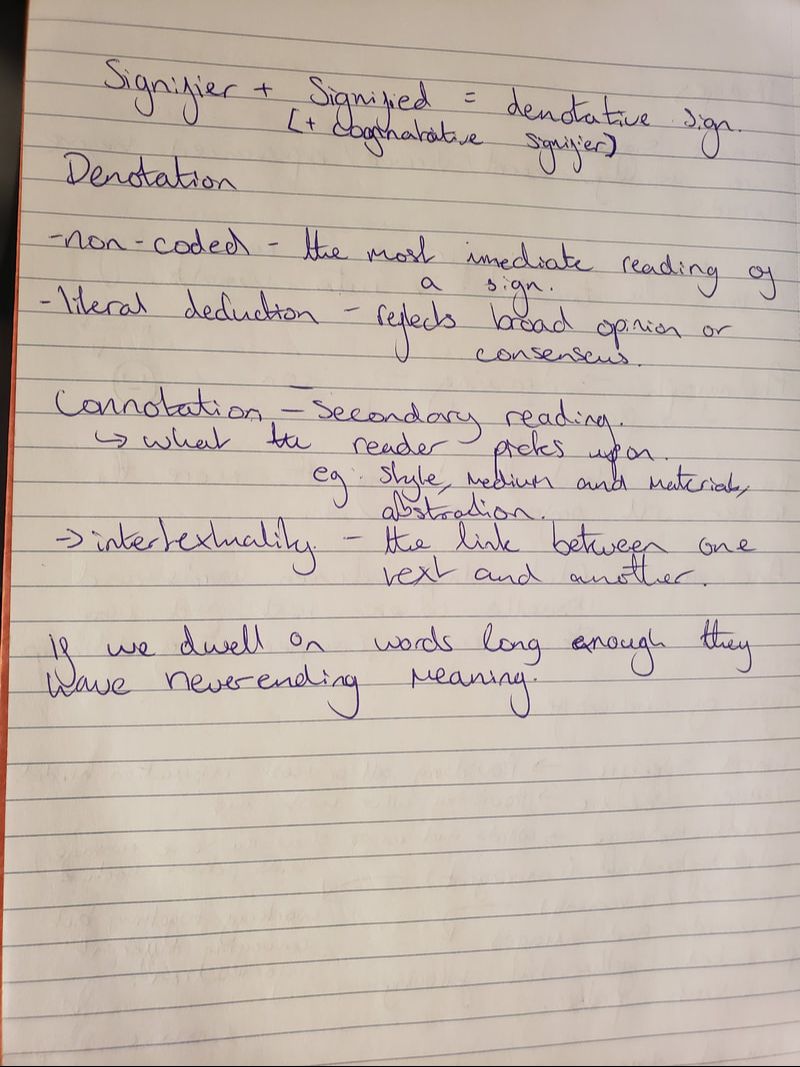 Signifier + Signified = denotative sign.
[+ signifier]
Denotation
-non-coded - the most imediate reading of
a sign.
-literal deduction - reflects broad opinion or
consensus.
Connotation - Secondary reading.
↳ what the reader picks upon.
eg: style, medium and material,
abstraction.
→ intertextuality. - the link between one
text and another.
if we dwell on words long enough they
have neverending meaning.